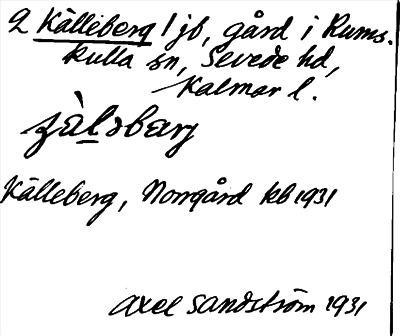 2 Källeberg 1 jb, gård i Rums-
kulla sn, Sevede hd,
Kalmar l.
Källeberg, Norrgård kb 1931
Axel Sandström 1931